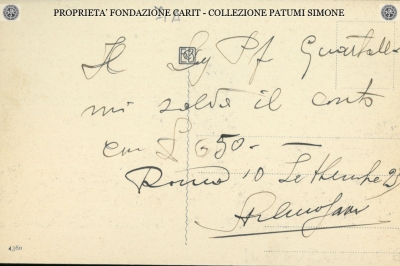 PROPRIETA' FONDAZIONE CARIT - COLLEZIONE PATUMI SIMONE
Il Sig Pf
mi salda il conto
con £ 650 -
Roma 10 Settembre 25
4380